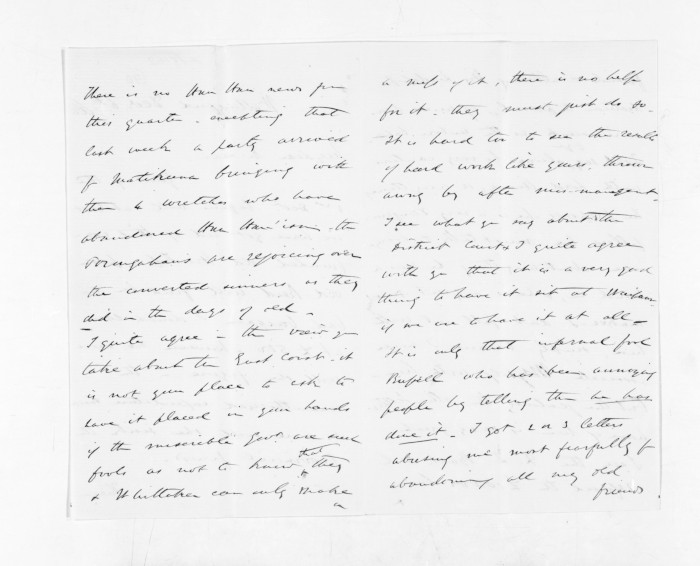 There is no Hau Hau news from
this quarter - excepting that
last week a party arrived
fr Matikeena bringing with
them 4 wretches who have
abandoned Hau Hau'ism - the
are rejoicing over
the converted sinners as they
did in the days of old -
I quite agree in the view you
take about the East Coast. it
is not your place to ask to
have it placed in your hands
if the miserable Govt are such
fools as not to know that they
& Whittaker can only make
a
a mess of it, there is no help
for it - they must just do so.
It is hard too to see the results
of hard work like yours. thrown
away by after miss-managemt.
I see what you say about the
District Court & I quite agree
with you that it is a very good
thing to have it sit at
if we are to have it at all -
It is only that infernal fool
Bussell who has been annoying
people by telling them he has
done it - I got 2 or 3 letters
abusing me most fearfully for
abandoning all my old
friends